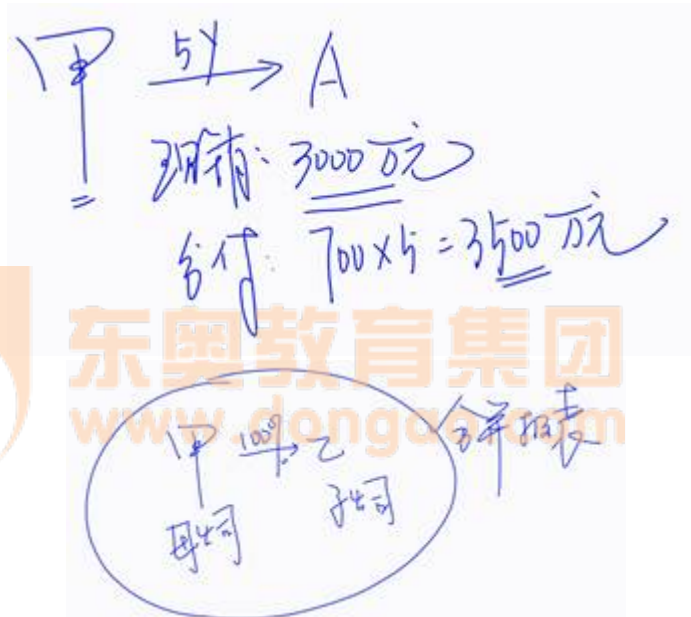 甲 5年 A
现销: 3000万元
分付: 700×5=3500万元
东奥教育集团
www.dongao.com
甲 100% 乙 合并报表
母公司 子公司